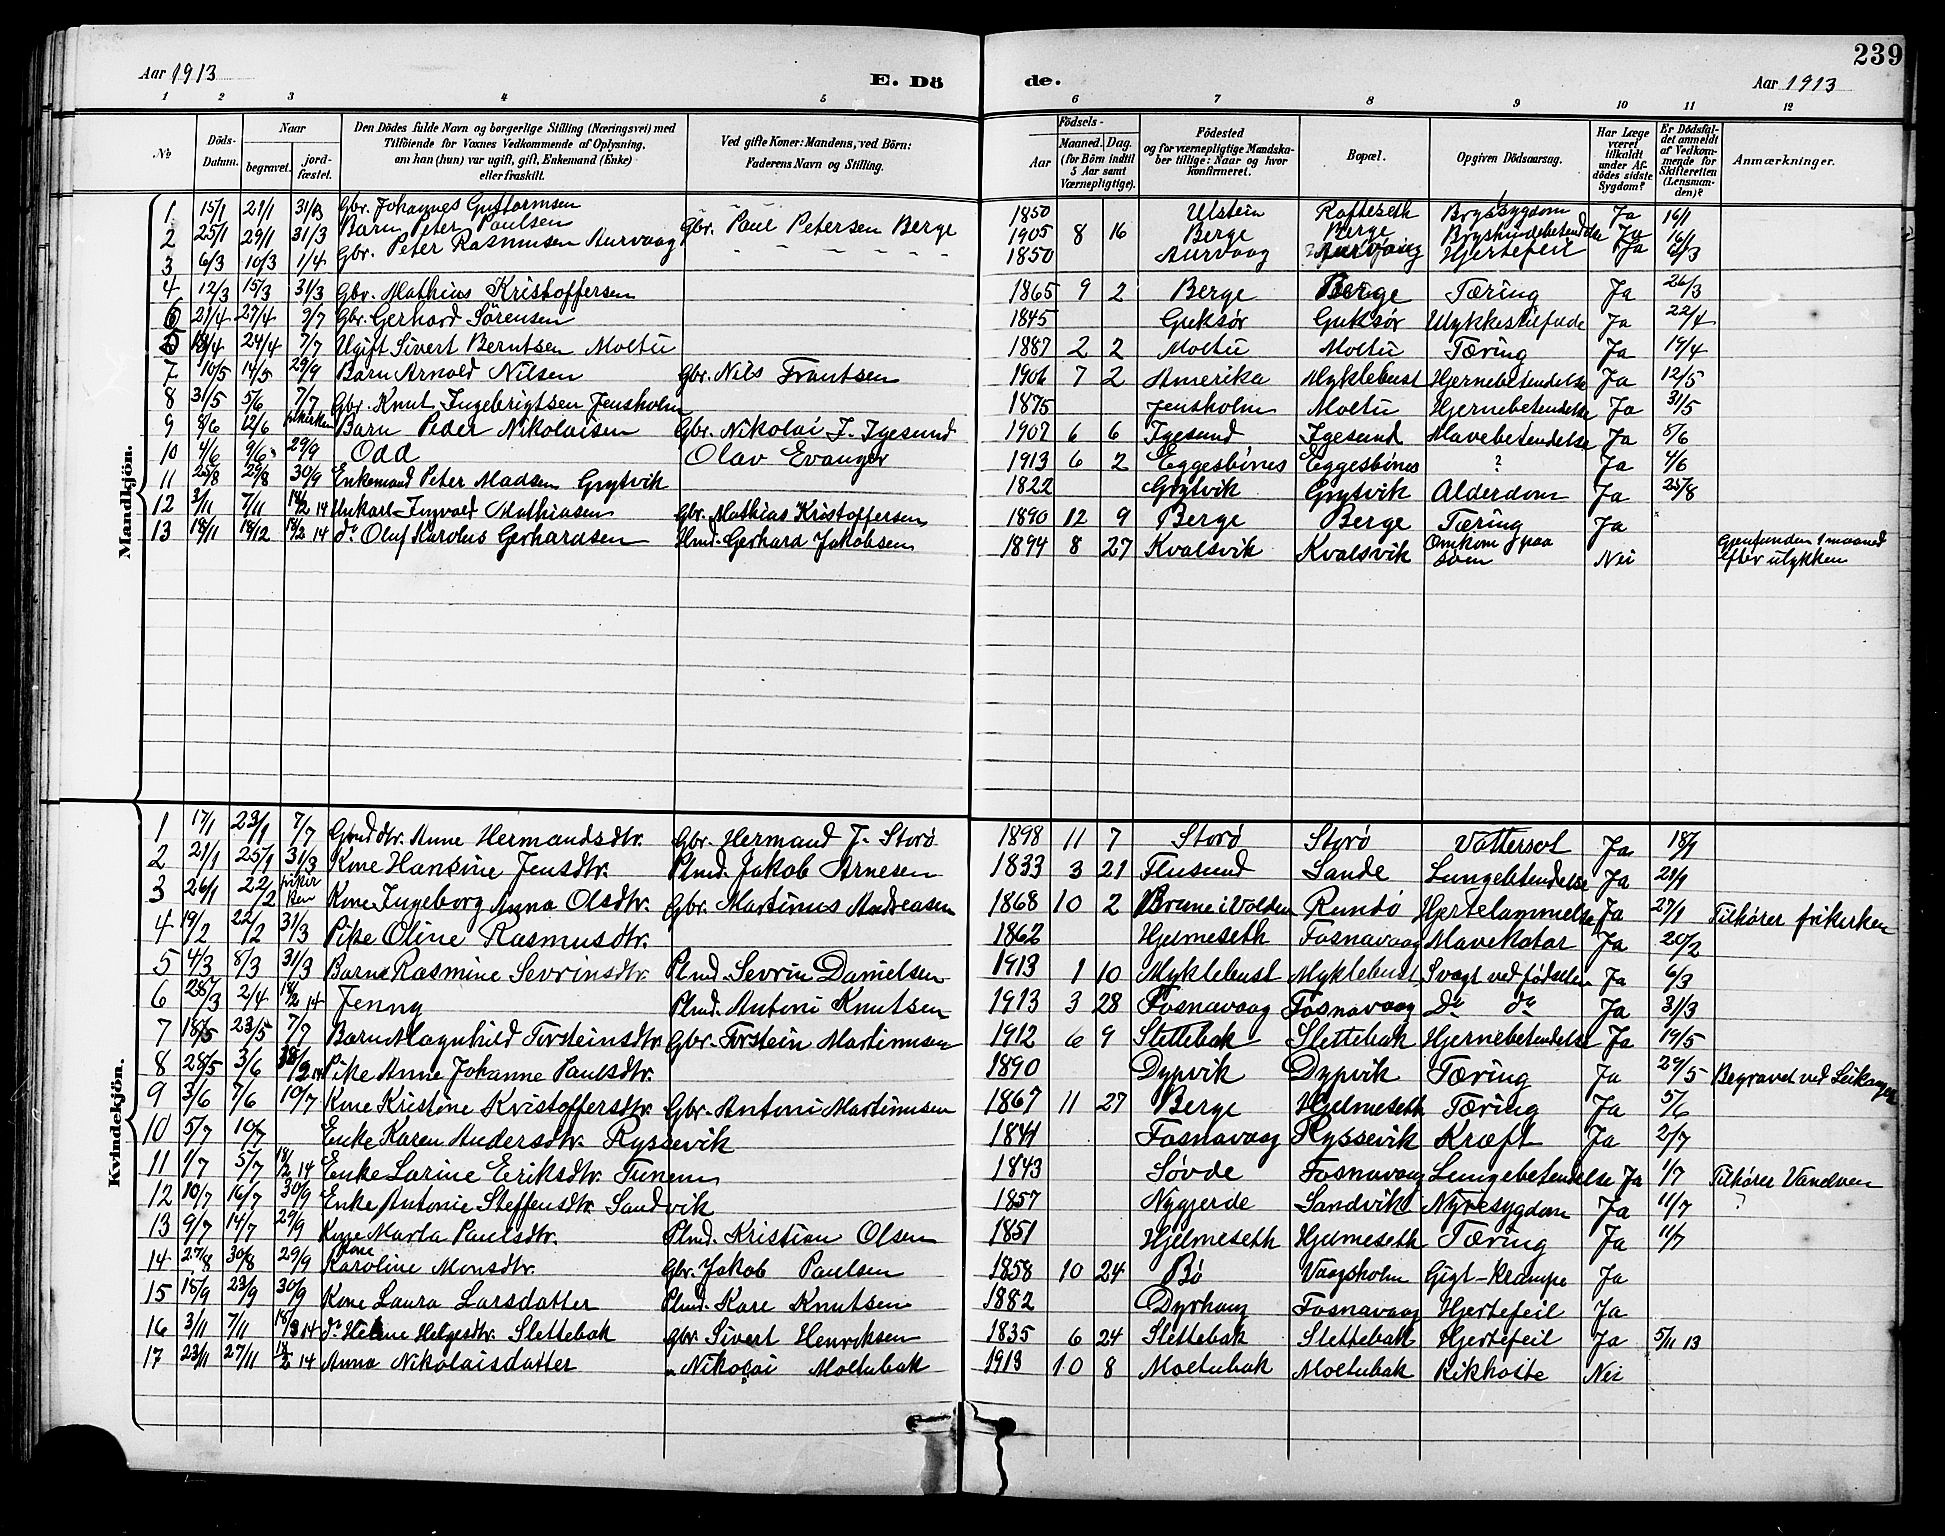 239
Aar 1913 E. Dö de. Aar 1913
1 2 3 4 5 6 7 8 9 10 11 12
No Döds-Datum. Naar begravet. jordfæstet. Den Dödes fulde Navn og borgerlige Stilling (Næringsvei) med Tilföiende for Voxnes Vedkommende af Oplysning, om han (hun) var ugift, gift, Enkemand (Enke) eller fraskilt. Ved gifte Koner: Mandens, ved Börn: Faderens Navn og Stilling. Födsels- Aar Maaned. Dag. (for Börn indtil 5 Aar samt Værnepligtige). Födested og for værnepligtige Mandskaber tillige: Naar og hvor konfirmeret. Bopæl. Opgiven Dödsaarsag. Har Læge været tilkaldt under Afdödes sidste Sygdom? Er Dödsfaldet anmeldt af Vedkommende for Skifteretten (Lensmanden)? Anmærkninger.
Mandkjön.
1 15/1 21/1 31/3 Gbr. Johannes Guttormsen 1850 Ulstein Rafteseth Brystsygdom Ja 16/1
2 25/1 29/1 31/3 Barn Peter Paulsen Gbr. Paul Petersen Berge 1905 8 16 Berge Berge Brysthindebetendelse Ja 16/1
3 6/3 10/3 1/4 Gbr. Peter Rasmusen Aurvaag 1850 Aurvaag Aurvaag Hjertefeil Ja 6/3
4 12/3 15/3 31/3 Gbr. Mathias Kristoffersen 1865 9 2 Berge Berge Tæring Ja 26/3
6 21/4 27/4 9/7 Gbr. Gerhard Sørensen 1845 Guksør Guksør Ulykkestilfælde Ja 22/4
5 18/4 24/4 7/7 Ugift Sivert Berntsen Moltu 1887 2 2 Moltu Moltu Tæring Ja 19/4
7 10/5 14/5 29/9 Barn Arnold Nilsen Gbr. Nils Frantsen 1906 7 2 Amerika Myklebust Hjernebetendelse Ja 12/5
8 31/5 5/6 7/7 Gbr. Knut Ingebrigtsen Jensholm 1875 Jensholm Moltu Hjernebetendelse Ja 31/5
9 8/6 12/6 frikirken Barn Peder Nikolaisen Gbr. Nikolai J. Igesund 1907 6 6 Igesund Igesund Mavebetendelse Ja 8/6
10 4/6 9/6 29/9 Odd Olav Evanger 1913 6 2 Eggesbønes Eggesbønes ? Ja 4/6
11 25/8 29/8 30/9 Enkemand Peter Madsen Grytvik 1822 Grytvik Grytvik Alderdom Ja 25/8
12 3/11 7/11 18/2 14 Unkarl Ingvald Mathiasen Gbr. Mathias Kristoffersen 1890 12 9 Berge Berge Tæring Ja
13 18/11 18/12 18/2 14 do Oluf Karolus Gerhardsen Plmd. Gerhard Jakobsen 1894 8 27 Kvalsvik Kvalsvik Omkom paa søen Nei Gjenfunden 1 maaned efter ulykken
Kvindekjön.
1 17/1 23/1 7/7 Gmd dtr. Anne Hermandsdtr. Gbr. Hermand J. Storø 1898 11 7 Storø Storø Vattersot Ja 18/1
2 21/1 25/1 31/3 Kone Hansine Jensdtr. Plmd. Jakob Arnesen 1833 3 21 Flusund Sande Lungebetendelse Ja 21/1
3 26/1 2/2 frikirken Kone Ingeborg Anna Olsdtr. Gbr. Martinus Andreasen 1868 10 2 Brune i Volden Rundø Hjertelammelse Ja 27/1 Tilhører frikirken
4 19/2 22/2 31/3 Pike Oline Rasmusdtr. 1862 Hjelmeseth Fosnavaag Mavekatar Ja 20/2
5 4/3 8/3 31/3 Barn Rasmine Sevrinsdtr. Plmd. Sevrin Danielsen 1913 1 10 Myklebust Myklebust Svagt ved fødselen Ja 6/3
6 28/3 2/4 18/2 14 Jenny Plmd. Antoni Knutsen 1913 3 28 Fosnavaag Fosnavaag Do do Ja 31/3
7 18/5 23/5 7/7 Barn Magnhild Torsteinsdtr. Gbr. Torstein Martinusen 1912 6 9 Slettebak Slettebak Hjernebetendelse Ja 19/5
8 28/5 3/6 18/2 14 Pike Anne Johanne Paulsdtr. 1890 Dypvik Dypvik Tæring Ja 29/5 Begravet ved Leikanger
9 3/6 7/6 10/7 Kone Kristine Kristoffersdtr. Gbr. Antoni Martinusen 1867 11 27 Berge Hjelmeseth Tæring Ja 5/6
10 5/7 10/7 Enke Karen Andersdtr. Ryssevik 1841 Fosnavaag Ryssevik Kræft Ja 2/7
11 1/7 5/7 18/2 14 Enke Larine Eriksdtr. Tunem 1843 Søvde Fosnavaag Lungebetendelse Ja 1/7 Tilhører Vandven ?
12 10/7 16/7 30/9 Enke Antonie Steffensdtr. Sandvik 1857 Nygjerde Sandvik Nyresygdom Ja 11/7
13 9/7 14/7 29/9 Kone Marta Paulsdtr. Plmd. Kristian Olsen 1851 Hjelmeseth Hjelmeseth Tæring Ja 11/7
14 27/8 30/8 29/9 Kone Karoline Monsdtr. Gbr. Jakob Paulsen 1858 10 24 Bø Vaagsholm Gigt-krampe Ja
15 18/9 23/9 30/9 Kone Laura Larsdatter Plmd. Kare Knutsen 1882 Dyrhaug Fosnavaag Hjertefeil Ja
16 3/11 7/11 18/3 14 do Helene Helgesdtr. Slettebak Gbr. Sivert Henriksen 1835 6 24 Slettebak Slettebak Hjertefeil Ja 5/11 13
17 23/11 27/11 18/2 14 Anna Nikolaisdatter " Nikolai Moltubak 1913 10 8 Moltubak Moltubak Kikhoste Nei